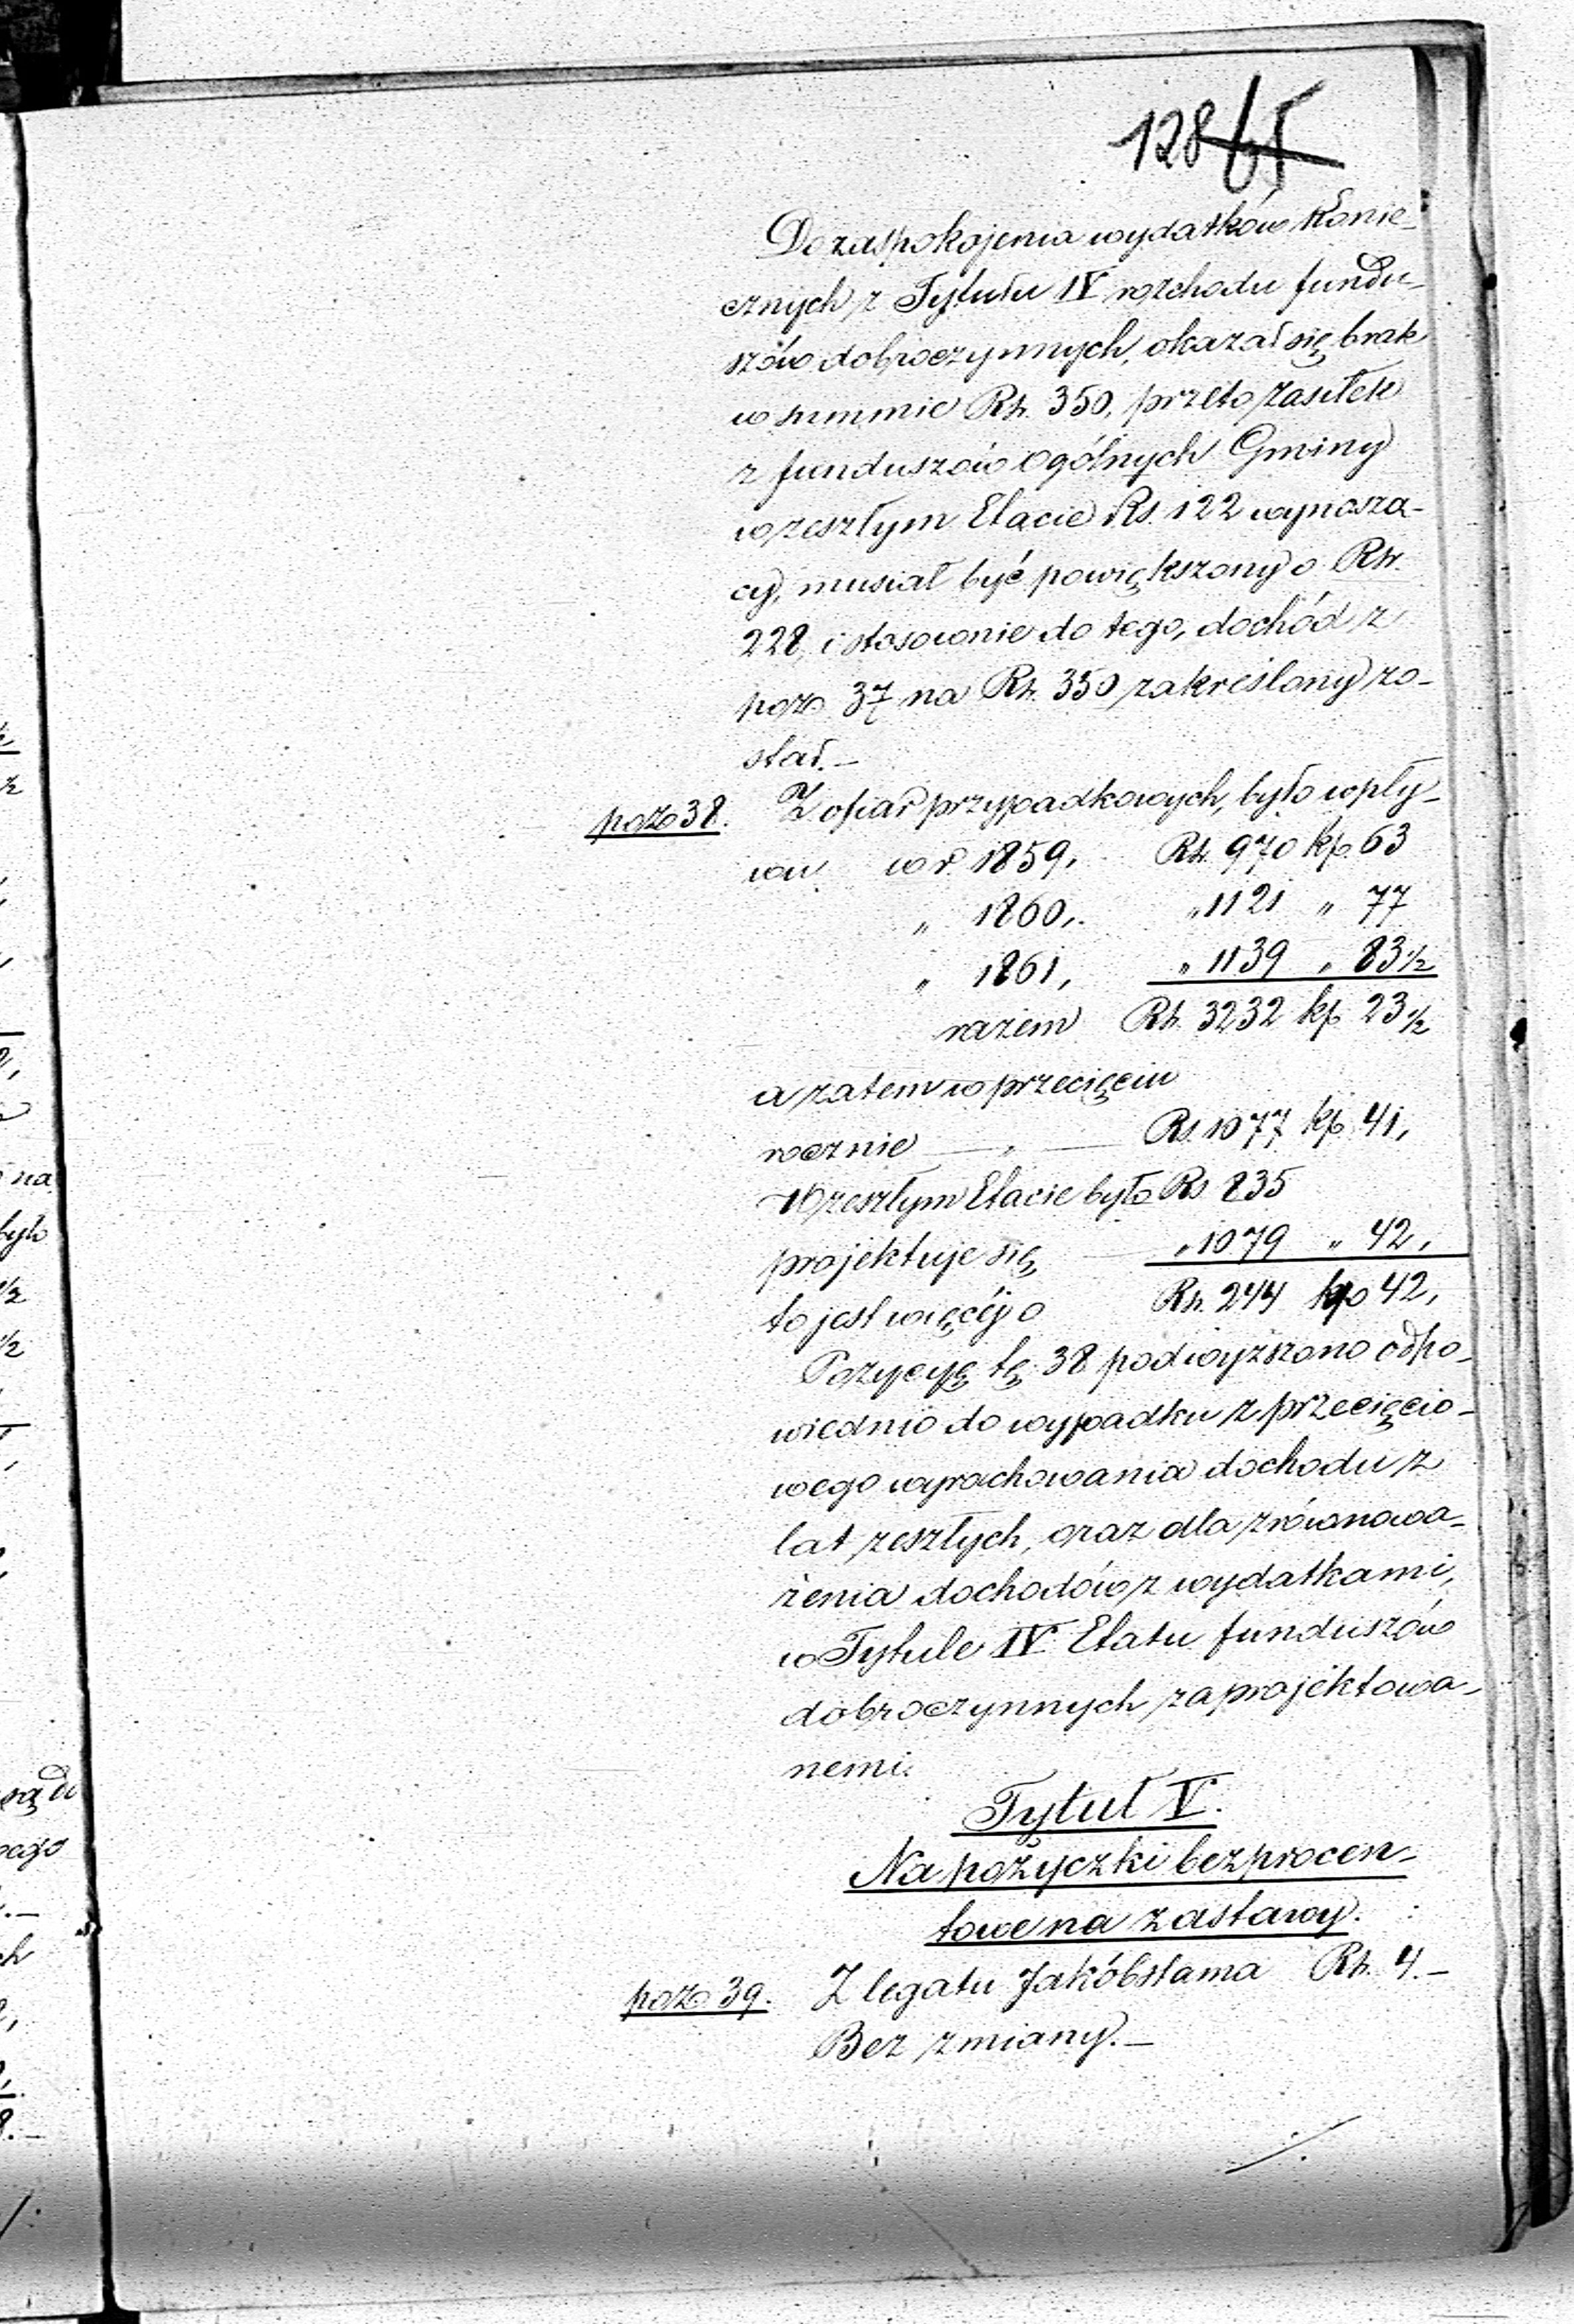 128 65
Do zaspokojenia wydatków konie-
cznych z Tytułu IV rozchodu fundu-
szów dobroczynnych, okazał się brak
w summie Rs. 350, przeto zasiłek
z funduszów ogólnych Gminy
w zeszłym Etacie Rs. 122 wynoszą-
cy, musiał być powiększony o Rs.
228, i stosownie do tego, dochód z
pozo 37 na Rs. 350 zakreślony zo-
stał.—
pozo 38. Z ofiar przypadkowych, było wpły-
wu w r. 1859, Rs. 970 kp. 63
" 1860, " 1121 " 77
" 1861, " 1139 " 83½
razem Rs. 3232 kp 23½
a zatem w przecięciu
rocznie — " — Rs. 1077 kp. 41,
W zeszłym Etacie było Rs 835
projektuje się " 1079 " 42,
to jest więcéj o Rs. 244 kp 42,
Pozycyę tę 38 podwyższono odpo-
wiednio do wypadku z przecięcio-
wego wyrachowania dochodu z
lat zeszłych, oraz dla zrównowa-
żenia dochodów z wydatkami,
w Tytule IV Etatu funduszów
dobroczynnych zaprojektowa-
nemi.
Tytuł V.
Na pożyczki bezprocen-
towe na zastawy.
pozo 39. Z legatu Jakóbstama Rs. 4.—
Bez zmiany.—